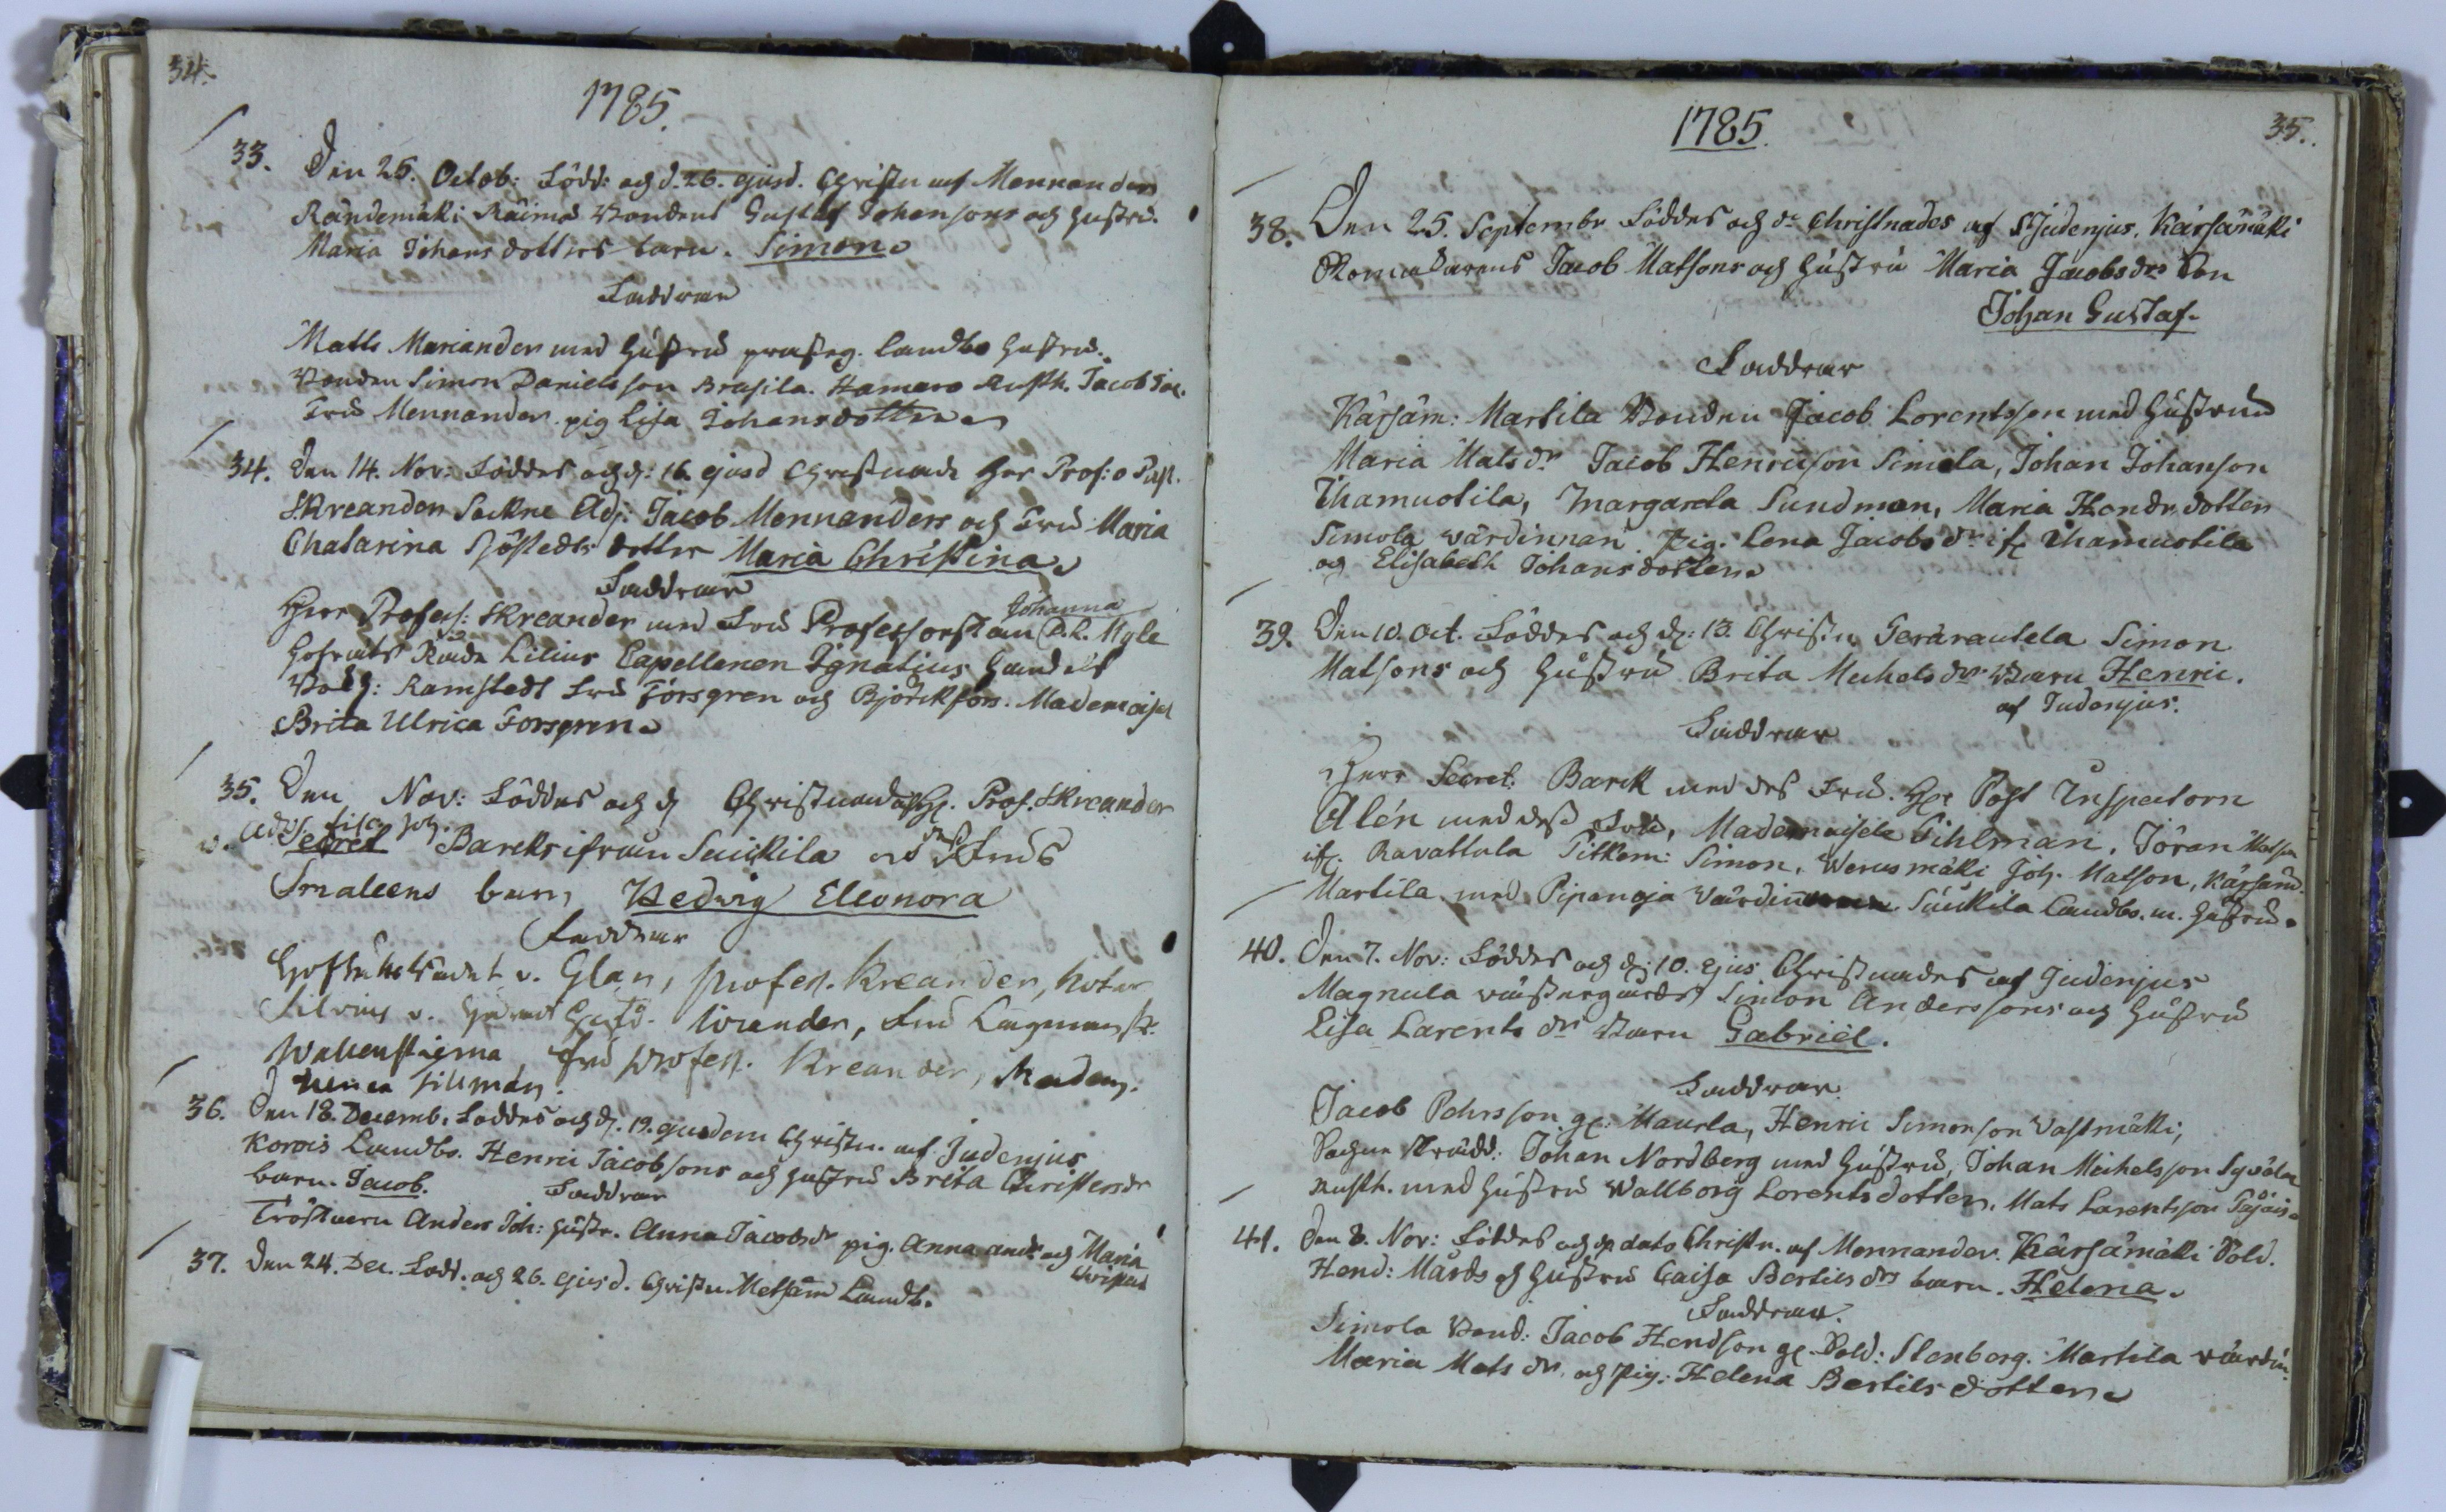 34.
1785.
33. Den 25. Octob: Född: och d. 26. ejusd. Christn af Mennander
Räntemäki Räimä Bondens Gustaf Johansons och hustru
Maria Johans dotters barn. Simon
Faddrar
Matts Mariander med hustru landbo hustru.
Bonden Simon Danielsson Brasila. Hamaro Rusth. Jacob Joh.
Fru Mennander. pig Lisa Johansdotter
34. Den 14. Nov: Föddes och d: 16. ejusd Christnade Herr Prof: o Past.
SKreander Adj: Jacob Mennanders och Fru Maria
Chatarina Sjöstedts dotter Maria Christina
Faddrar
Herr Profess: SKreander med Fru Professorskan Johanna Myle
Hofrätts Råde Lilius Capellanen Ignatius handels
Bokh: Ramstedt Fru Forsgren och Björckfors. Mademoisel
Brita Ulrica Forsgren
35. Den Nov: Föddes och d Christnades af H. Prof. SKreander
v. Adv. fisc. Joh.
Secret Barcks ifrån Saukila och dess Frus
Smaleens barn Hedvig Eleonora
Faddrar
v. Glan, Profess. Kreander, Notar
Silvius v. Wiander, Fru Lagmansk.
Wallenstierna Fru Profess. Kreander, Madem.
Tillman.
36. Den 18. Decemb. Föddes och d. 19. ejusdem Christn. af Judenjus
Korois Landbo. Henric Jacobsons och hustru Brita Christersdr
barn. Jacob.
Faddrar
Anders Joh: hustr. Anna Jacobsdr pig. Anna And. och Maria
Christersd
37. Den 24. Dec. Född. och 26. ejusd. Christn. Metsäm Landb.
35.
1785.
38. Den 25. Septembr Föddes och do Christnades af Judenjus. Kärsämäki
Jacob Matsons och hustru Maria Jacobsdrs Son
Johan Gustaf
Faddrar
Kärsäm: Martila Bonden Jacob Lorentsson med hustrun
Maria Matsdr Jacob Henricson Simola, Johan Johanson
Thamuotila, Margareta Sundman, Maria Hendr. dotter
Simola värdinnan. Pig. Lena Jacobsdr if. Thamuotila
och Elisabeth Johansdotter
39. Den 10. Oct. Föddes och d: 13. Christn Simon
Matsons och hustru Brita Michelsdrs Barn Henric.
af Judenjus.
Faddrar
Herr Secret. Barck med dess Fru. Hr Post Inspectorn
Alén med dess Fru, Mademoiselle Tihlman, Jöran Matsson
ifr. Ravattula Pitkem: Simon, Werusmäki Joh. Matson, Kärsäm.
Martila med Pipanoja Värdin. Saukila Landbo. m. hustru
40. Den 7. Nov: Föddes och d: 10. ejus Christnades af Judenjus
Magnula Simon Anderssons och hustru
Lisa Larents dr Barn Gabriel.
Faddrar
Jacob Pehrsson ifr. Maurla, Henric Simonson Vastmäki,
Sochne Skrädd: Johan Nordberg med hustru, Johan Michelsson
Rusth. med hustru Wallborg Lorents dotter. Mats Larentsson
41. Den 8. Nov: Föddes och do dato Christn. af Mennander. Kärsämäki Sold.
Hend: Mårds och hustru Caisa Bertilsdrs barn. Helena.
Faddrar.
Simola Bond: Jacob Hendson Sold: Stenborg. Martila värdin.
Maria Mats dr. och Pig: Helena Bertilsdotter